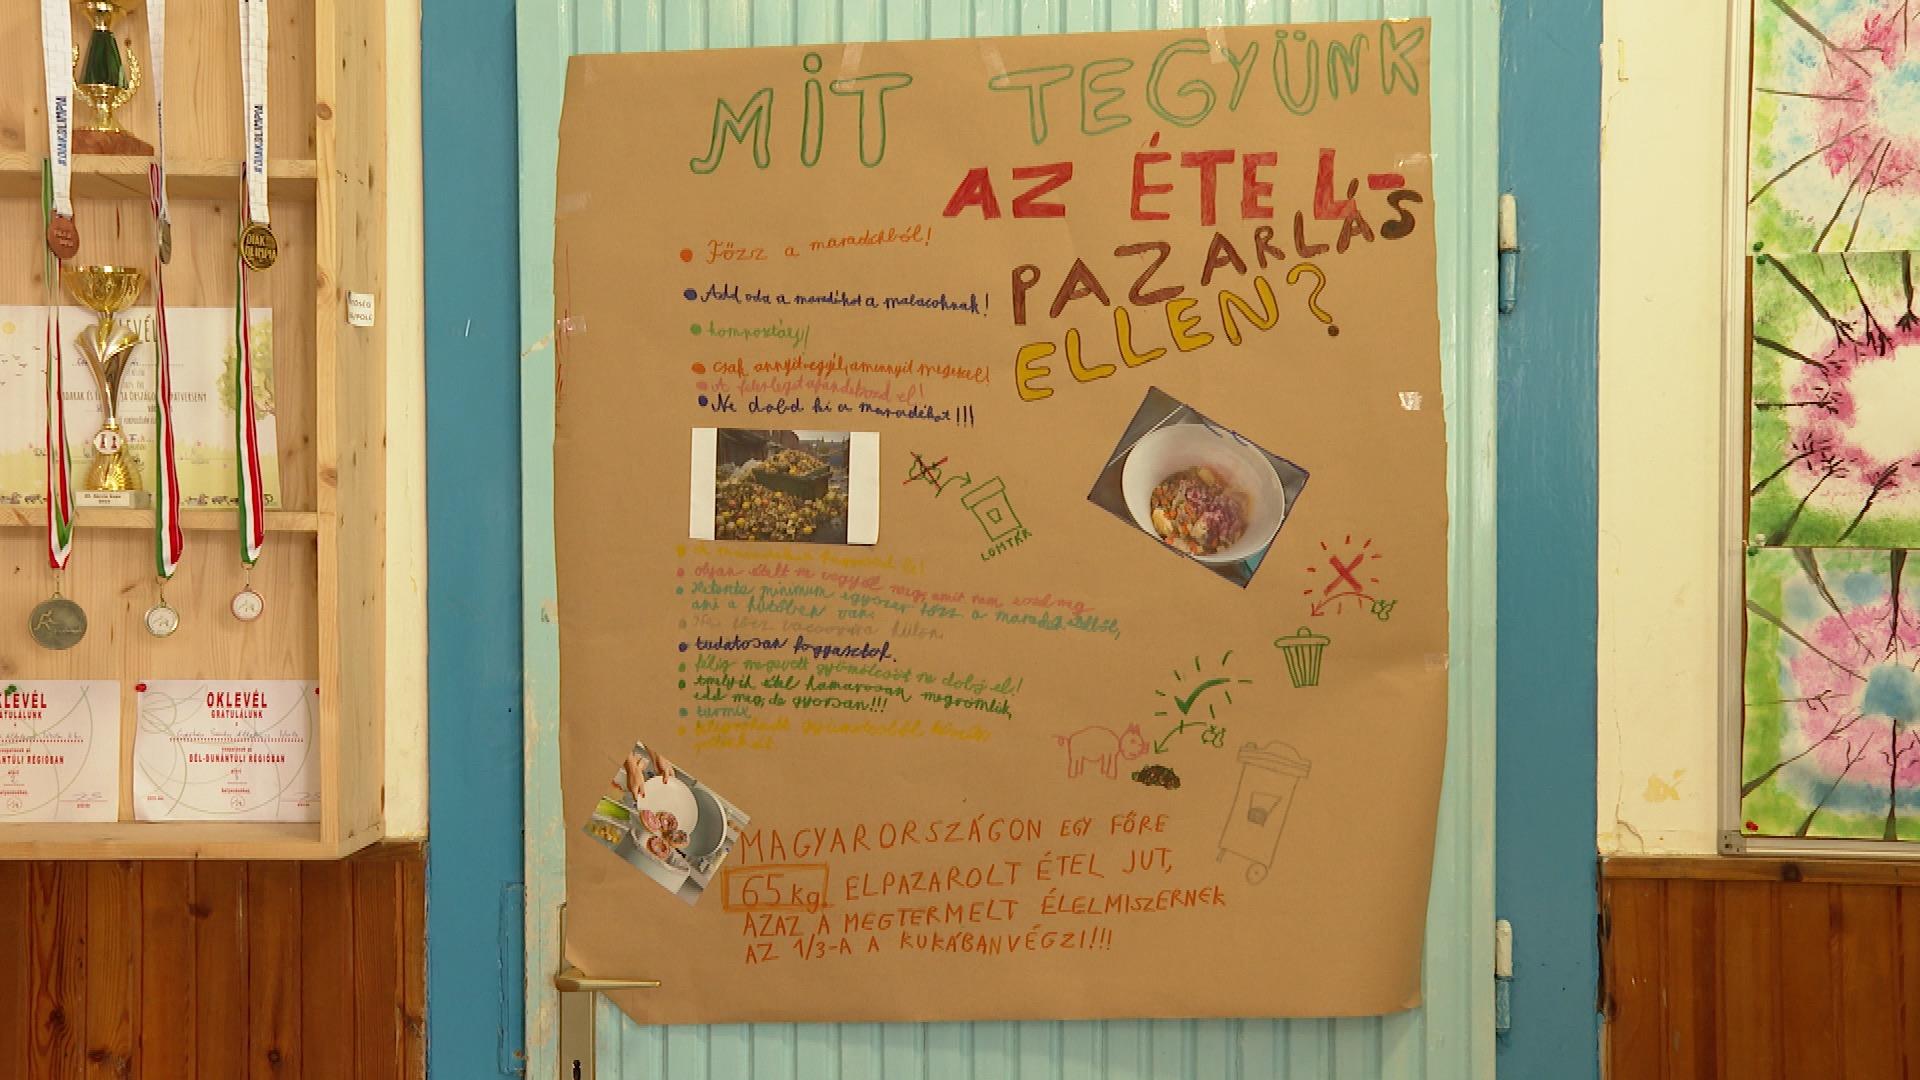 MIT TEGYÜNK
AZ ÉTEL-
PAZARLÁS
ELLEN?
Főzz a maradékból!
Add oda a maradékot a malacoknak!
komposztálj!
csak annyit egyél, amennyit megeszel!
A felesleget ajándékozd el!
Ne dobd ki a maradékot!!!
LOMTÁR
olyan ételt ne vegyél meg, amit nem eszel meg
Hetente minimum egyszer főzz a maradék ételből,
ami a hűtőben van.
Ne főzz vacsorára külön
tudatosan fogyasztok.
félig megevett gyümölcsöt ne dobj el!
Amelyik étel hamarosan megromlik,
edd meg, de gyorsan!!!
turmix
MAGYARORSZÁGON EGY FŐRE
65 kg. ELPAZAROLT ÉTEL JUT,
AZAZ A MEGTERMELT ÉLELMISZERNEK
AZ 1/3-A A KUKÁBAN VÉGZI!!!
#DIAKOLIMPIA
#DIAKOLIMPIA
DIÁK
OLIMPIA
OKLEVÉL
GRATULÁLUNK
DÉL-DUNÁNTÚLI RÉGIÓBAN